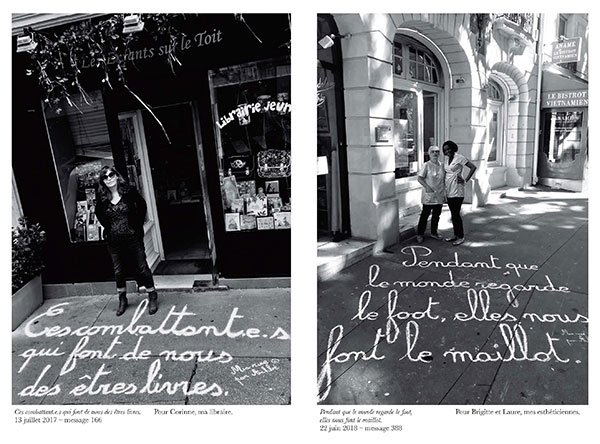 Les Enfants sur le Toit
Librairie Jeun
Ces combattant.e.s
qui font de nous
des êtres livres.
Ces combattant.e.s qui font de nous des êtres livres.
13 juillet 2017 – message 166
Pour Corinne, ma libraire.
LE BISTROT
VIETNAMIEN
Pendant que
le monde regarde
le foot, elles nous
font le maillot.
Pendant que le monde regarde le foot,
elles nous font le maillot.
22 juin 2018 – message 388
Pour Brigitte et Laure, mes esthéticiennes.